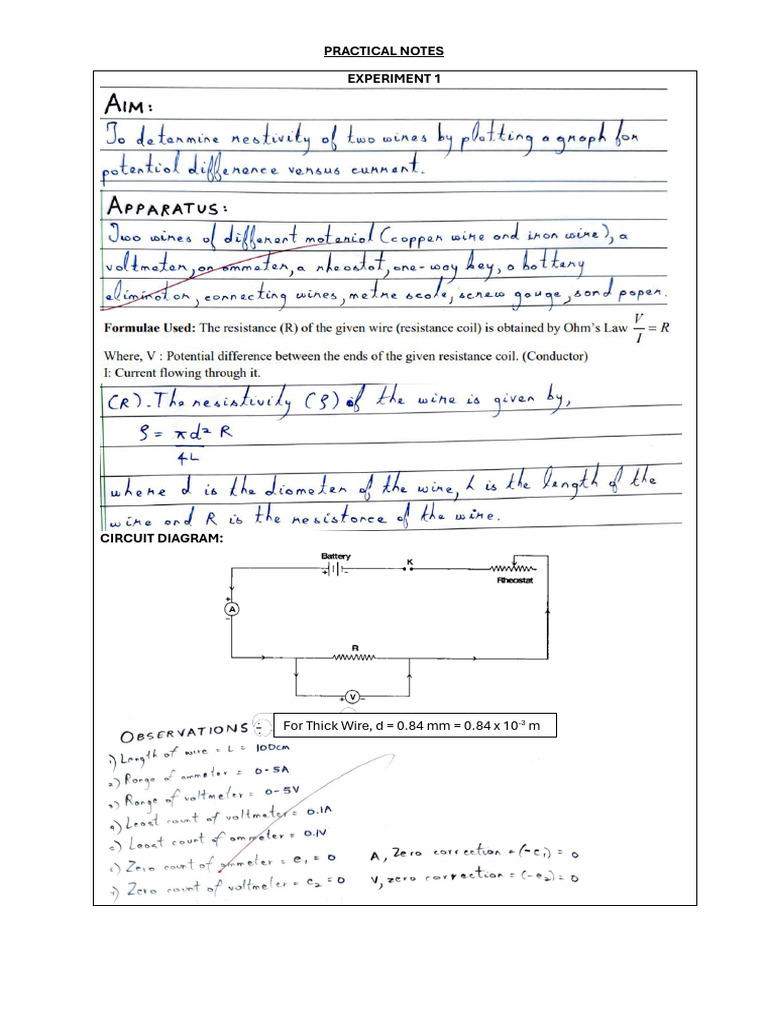 PRACTICAL NOTES
EXPERIMENT 1
AIM:
To determine restivity of two wires by plotting a graph for
potential difference versus current.
APPARATUS:
Two wires of different material (copper wire and iron wire), a
voltmeter, an ammeter, a rheostat, one-way key, a battery
eliminator, connecting wires, metre scale, screw gauge, sand paper.
Formulae Used: The resistance (R) of the given wire (resistance coil) is obtained by Ohm's Law V/I = R
Where, V : Potential difference between the ends of the given resistance coil. (Conductor)
I: Current flowing through it.
(R). The resistivity (ρ) of the wire is given by,
ρ = πd² R
4L
where d is the diameter of the wire, L is the length of the
wire and R is the resistance of the wire.
CIRCUIT DIAGRAM:
Battery
+ -
K
Rheostat
+
A
-
R
+ V -
OBSERVATIONS :-
For Thick Wire, d = 0.84 mm = 0.84 x 10⁻³ m
1) Length of wire = L = 100cm
2) Range of ammeter = 0-5A
3) Range of voltmeter = 0-5V
4) Least count of voltmeter = 0.1A
5) Least count of ammeter = 0.1V
6) Zero count of ammeter = e₁ = 0 A, Zero correction = (-e₁) = 0
7) Zero count of voltmeter = e₂ = 0 V, zero correction = (-e₂) = 0